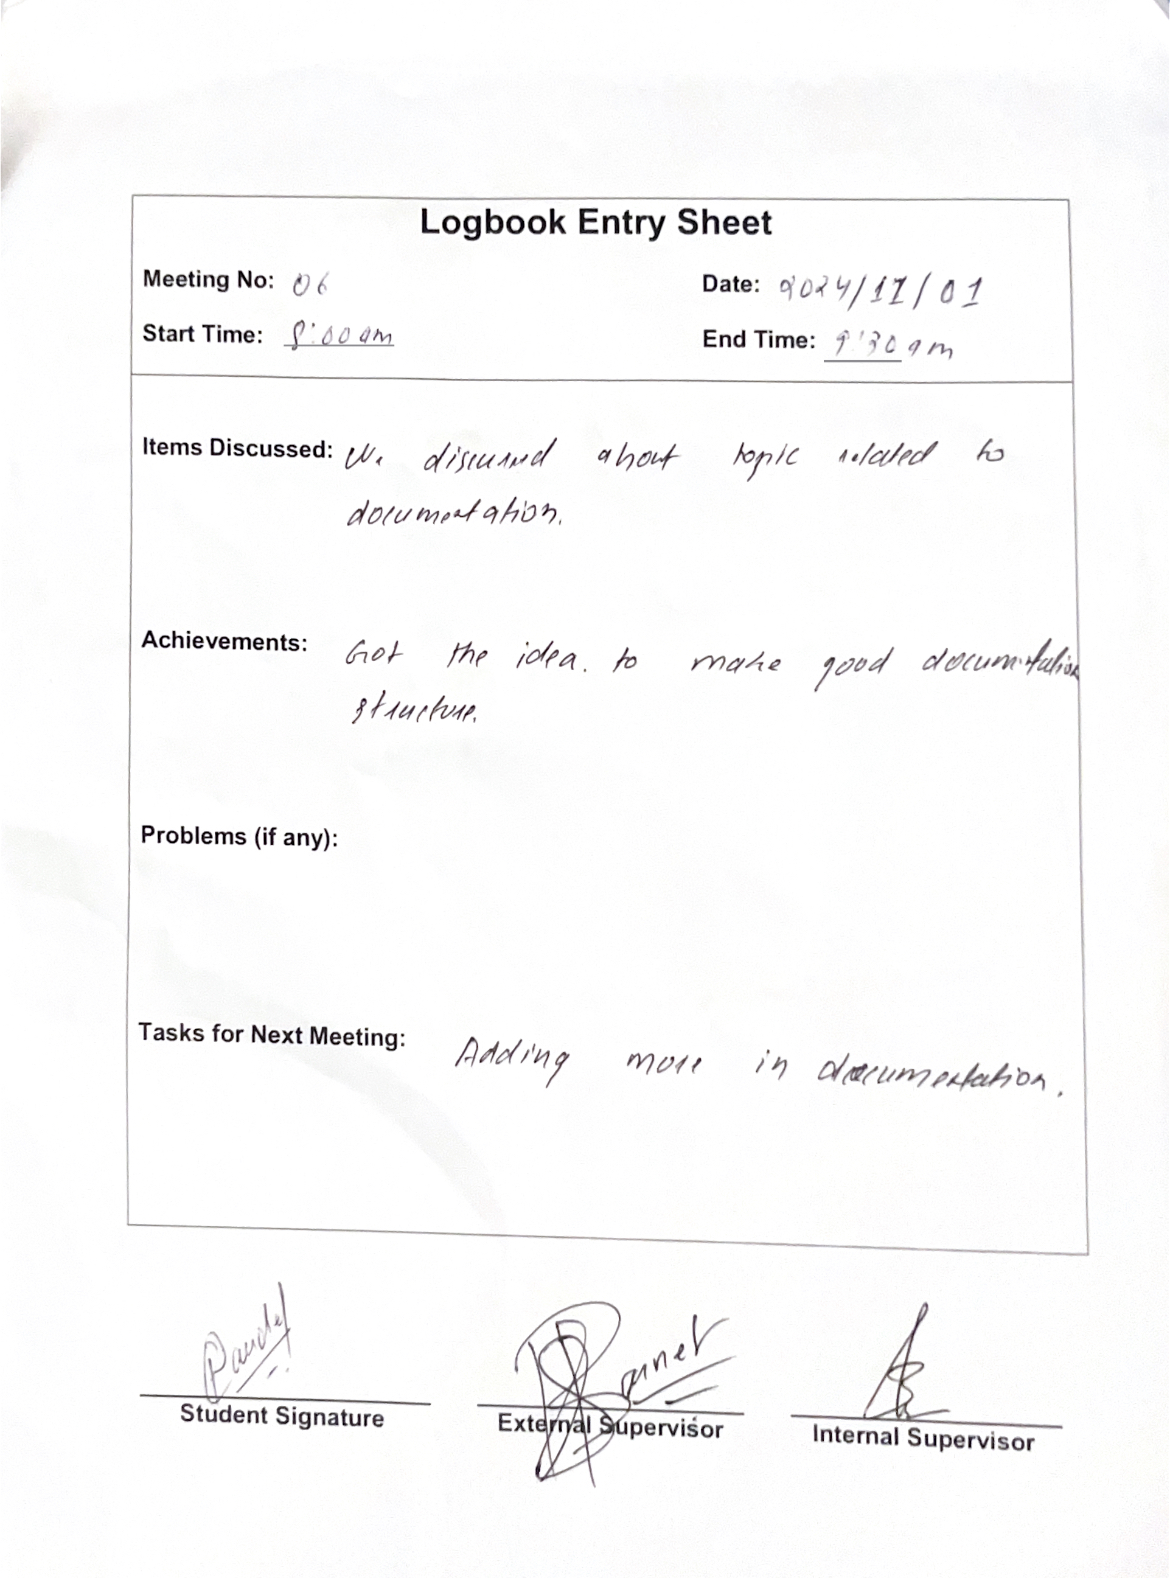 Logbook Entry Sheet
Meeting No: 06
Date: 2024/11/01
Start Time: 8:00am
End Time: 9:30am
Items Discussed: We discussed about topic related to
documentation.
Achievements: Got the idea. to make good documentation
structure.
Problems (if any):
Tasks for Next Meeting: Adding more in documentation.
Paudel
Student Signature
External Supervisor
Internal Supervisor